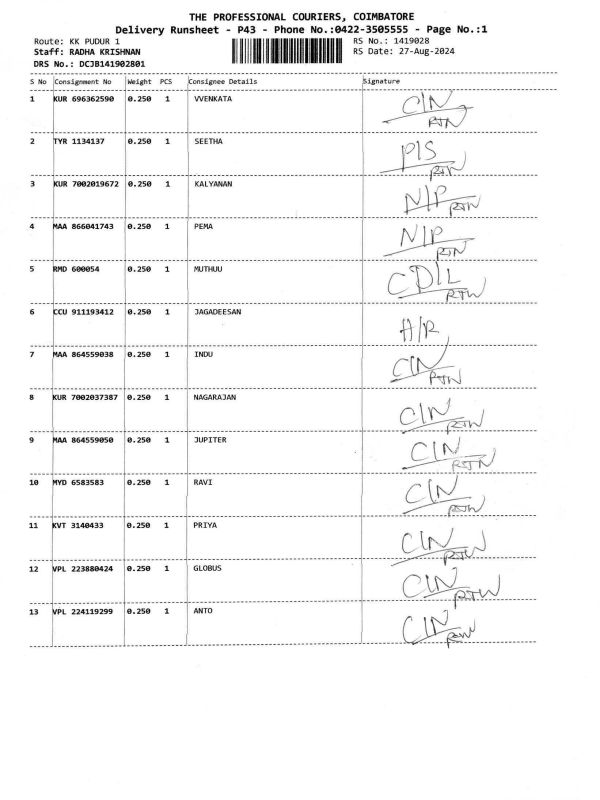 THE PROFESSIONAL COURIERS, COIMBATORE
Delivery Runsheet - P43 - Phone No.:0422-3505555 - Page No.:1
Route: KK PUDUR 1 RS No.: 1419028
Staff: RADHA KRISHNAN RS Date: 27-Aug-2024
DRS No.: DCJB141902801
S No Consignment No Weight PCS Consignee Details Signature
1 KUR 696362590 0.250 1 VVENKATA C/N
RTN
2 TYR 1134137 0.250 1 SEETHA P/S
RTN
3 KUR 7002019672 0.250 1 KALYANAN N/P
RTN
4 MAA 866041743 0.250 1 PEMA N/P
RTN
5 RMD 600054 0.250 1 MUTHUU
RTN
6 CCU 911193412 0.250 1 JAGADEESAN
7 MAA 864559038 0.250 1 INDU C/N
RTN
8 KUR 7002037387 0.250 1 NAGARAJAN C/N
RTN
9 MAA 864559050 0.250 1 JUPITER C/N
RTN
10 MYD 6583583 0.250 1 RAVI C/N
RTN
11 KVT 3140433 0.250 1 PRIYA C/N
RTN
12 VPL 223880424 0.250 1 GLOBUS C/N
RTN
13 VPL 224119299 0.250 1 ANTO C/N
RTN